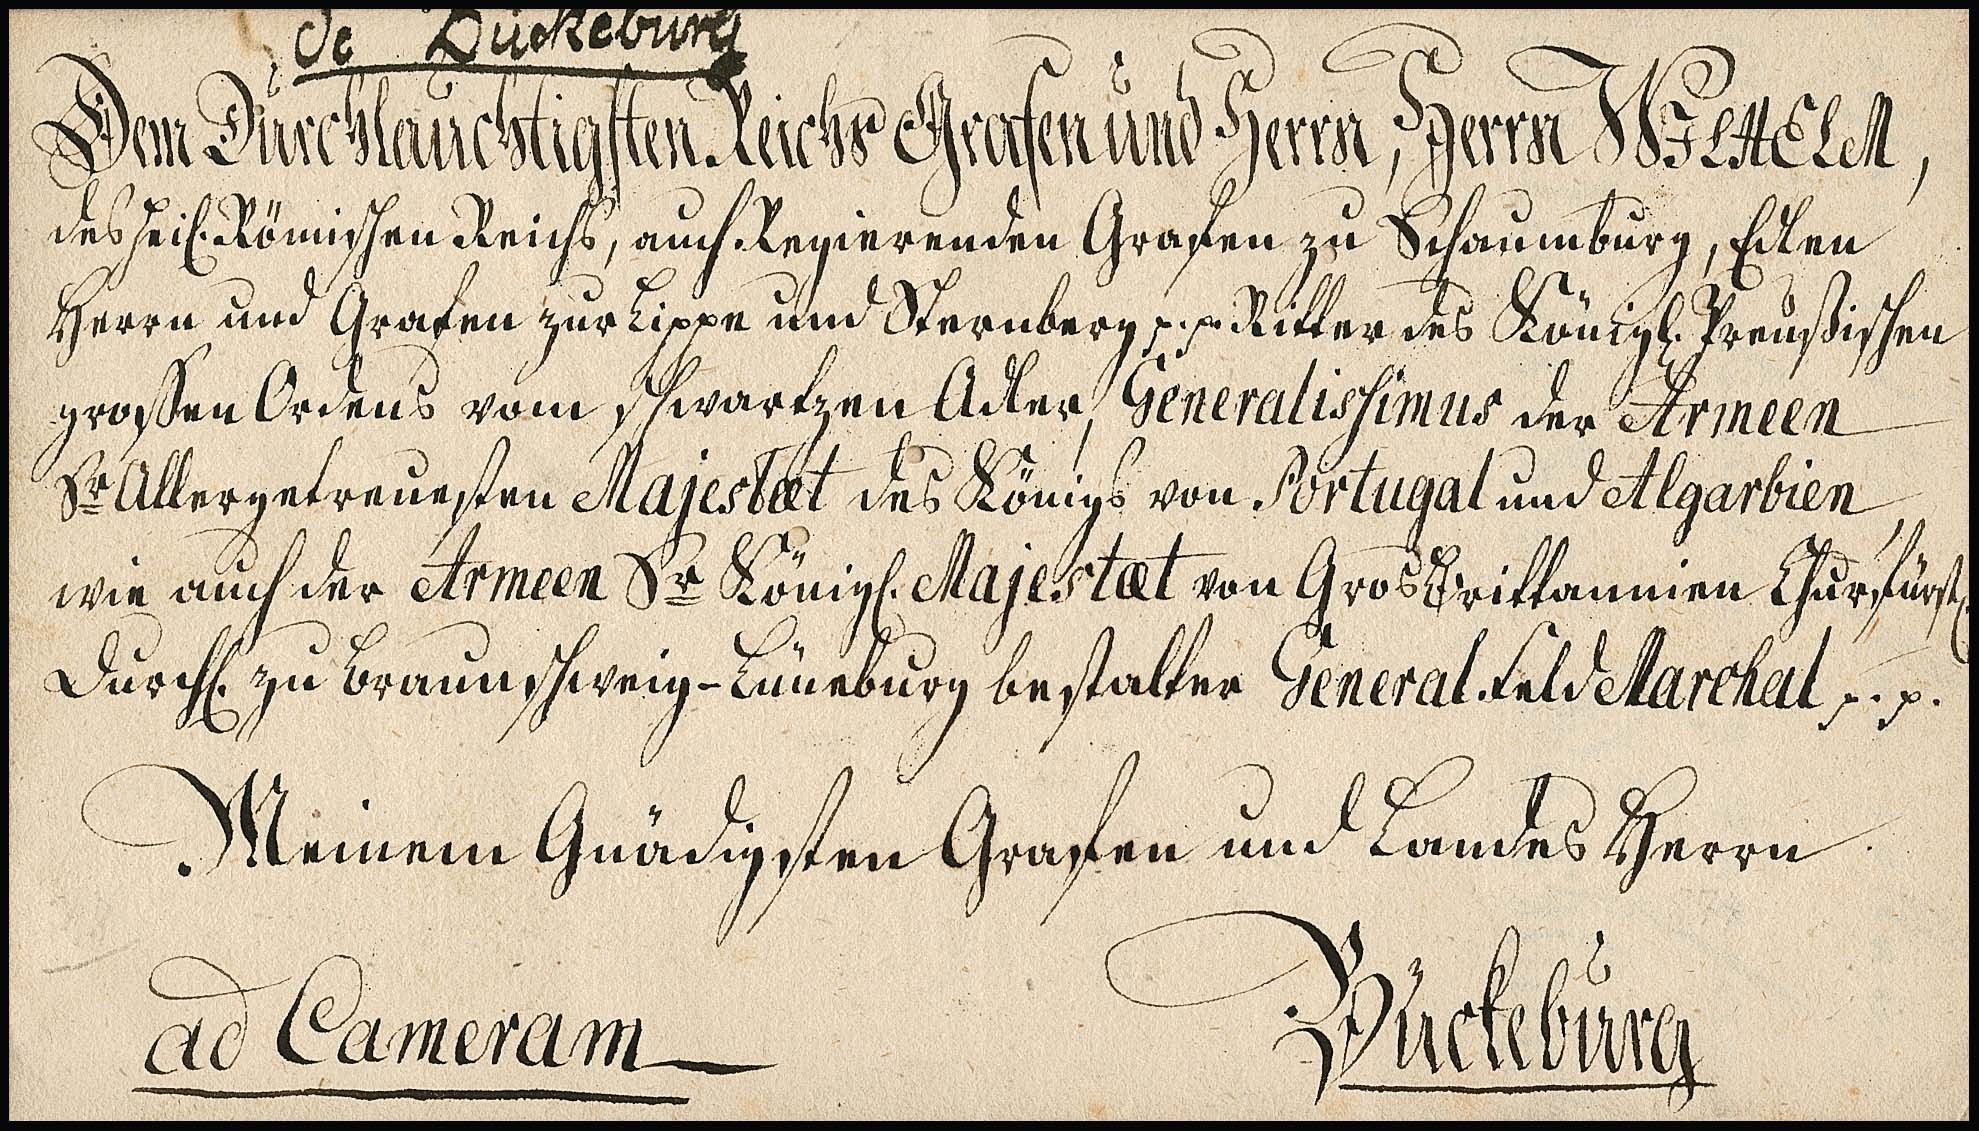 de Bückeburg
Dem Durchlauchtigsten Reichs Grafen und Herrn, Herrn WILHELM,
des heil. Römischen Reichs, auch Regierenden Grafen zu Schaumburg, Edlen
Herrn und Grafen zur Lippe und Sternberg p. p. Ritter des Königl. Preußischen
grossen Ordens vom schwartzen Adler, Generalissimus der Armeen
Sr. Allergetreuesten Majestæt des Königs von Portugal und Algarbien,
wie auch der Armeen Sr. Königl. Majestæt von Gros Brittannien Churfürstl.
Durchl. zu Braunschweig-Lüneburg bestalter General-Feld Marchal p. p.
Meinem Gnädigsten Grafen und Landes Herrn.
ad Cameram
Bückeburg